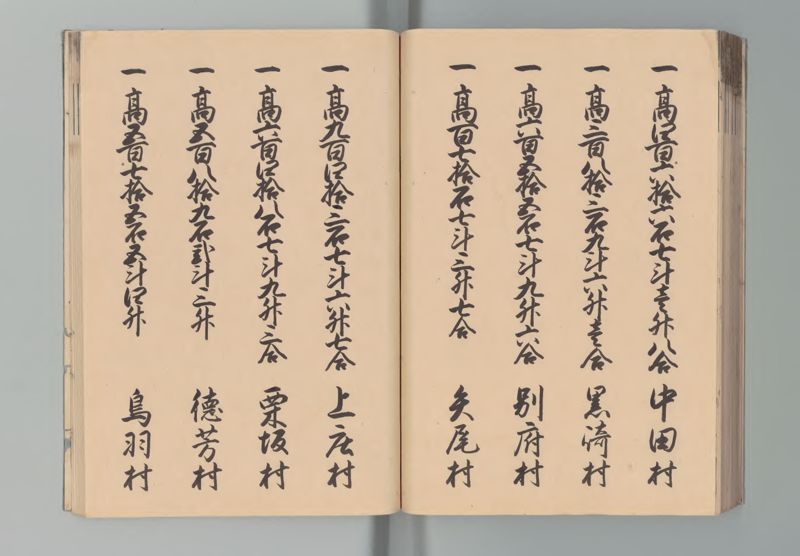 一 高四百六拾六石七斗壱升八合 中田村
一 高三百八拾三石九斗六升壱合 黒崎村
一 高六百五拾五石七斗九升六合 別府村
一 高百七拾石七斗三升七合 矢尾村
一 高九百四拾三石七斗六升七合 上庄村
一 高六百四拾八石七斗九升三合 栗坂村
一 高五百八拾九石弐斗三升 徳芳村
一 高五百七拾五石五斗四升 鳥羽村